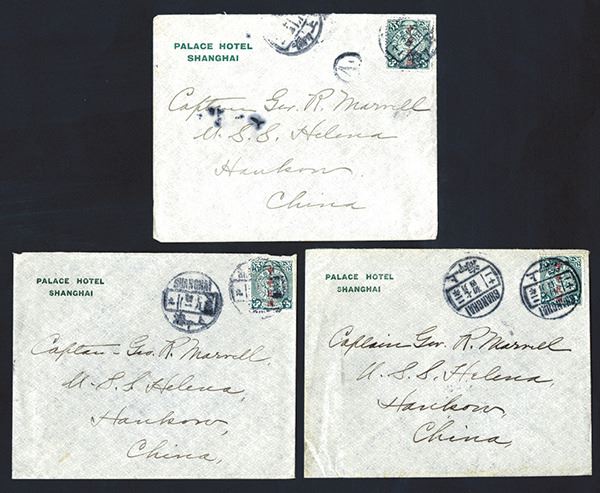 PALACE HOTEL
SHANGHAI
Captain Geo. R. Marvell
U.S.S. Helena
Hankow
China
PALACE HOTEL
SHANGHAI
SHANGHAI
Captain Geo. R. Marvell,
U.S.S. Helena,
Hankow,
China,
PALACE HOTEL
SHANGHAI
SHANGHAI
SHANGHAI
Captain Geo. R. Marvell,
U.S.S. Helena,
Hankow,
China,